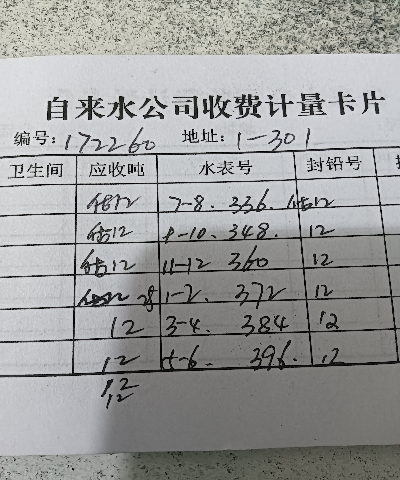 自来水公司收费计量卡片
编号: 172260 地址: 1-301
卫生间 应收吨 水表号 封铅号
估12 7-8. 336. 估12
估12 9-10. 348. 12
估12 11-12 360 12
1-2. 372 12
12 3-4. 384 12
12 5-6. 396. 12
12
12